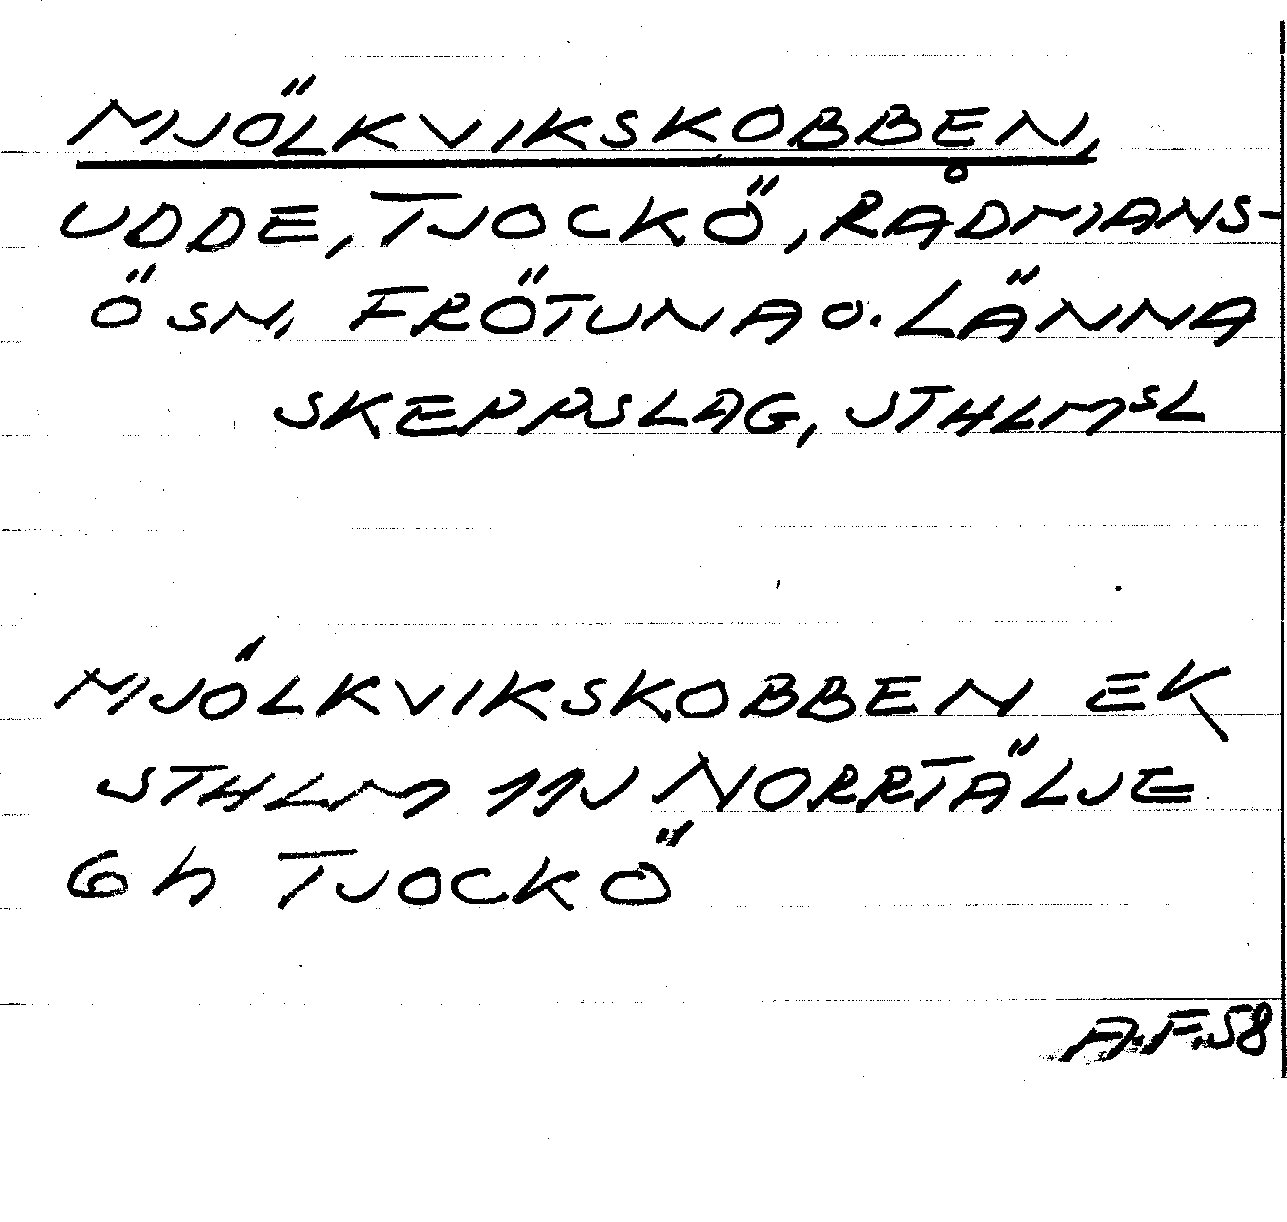 MJÖLKVIKSKOBBEN,
UDDE, TJOCKÖ, RÅDMANS-
Ö SN, FRÖTUNA O. LÄNNA
SKEPPSLAG, STHLMSL
MJÖLKVIKSKOBBEN EK
STHLM 11J NORRTÄLJE
6h TJOCKÖ
A.F.58